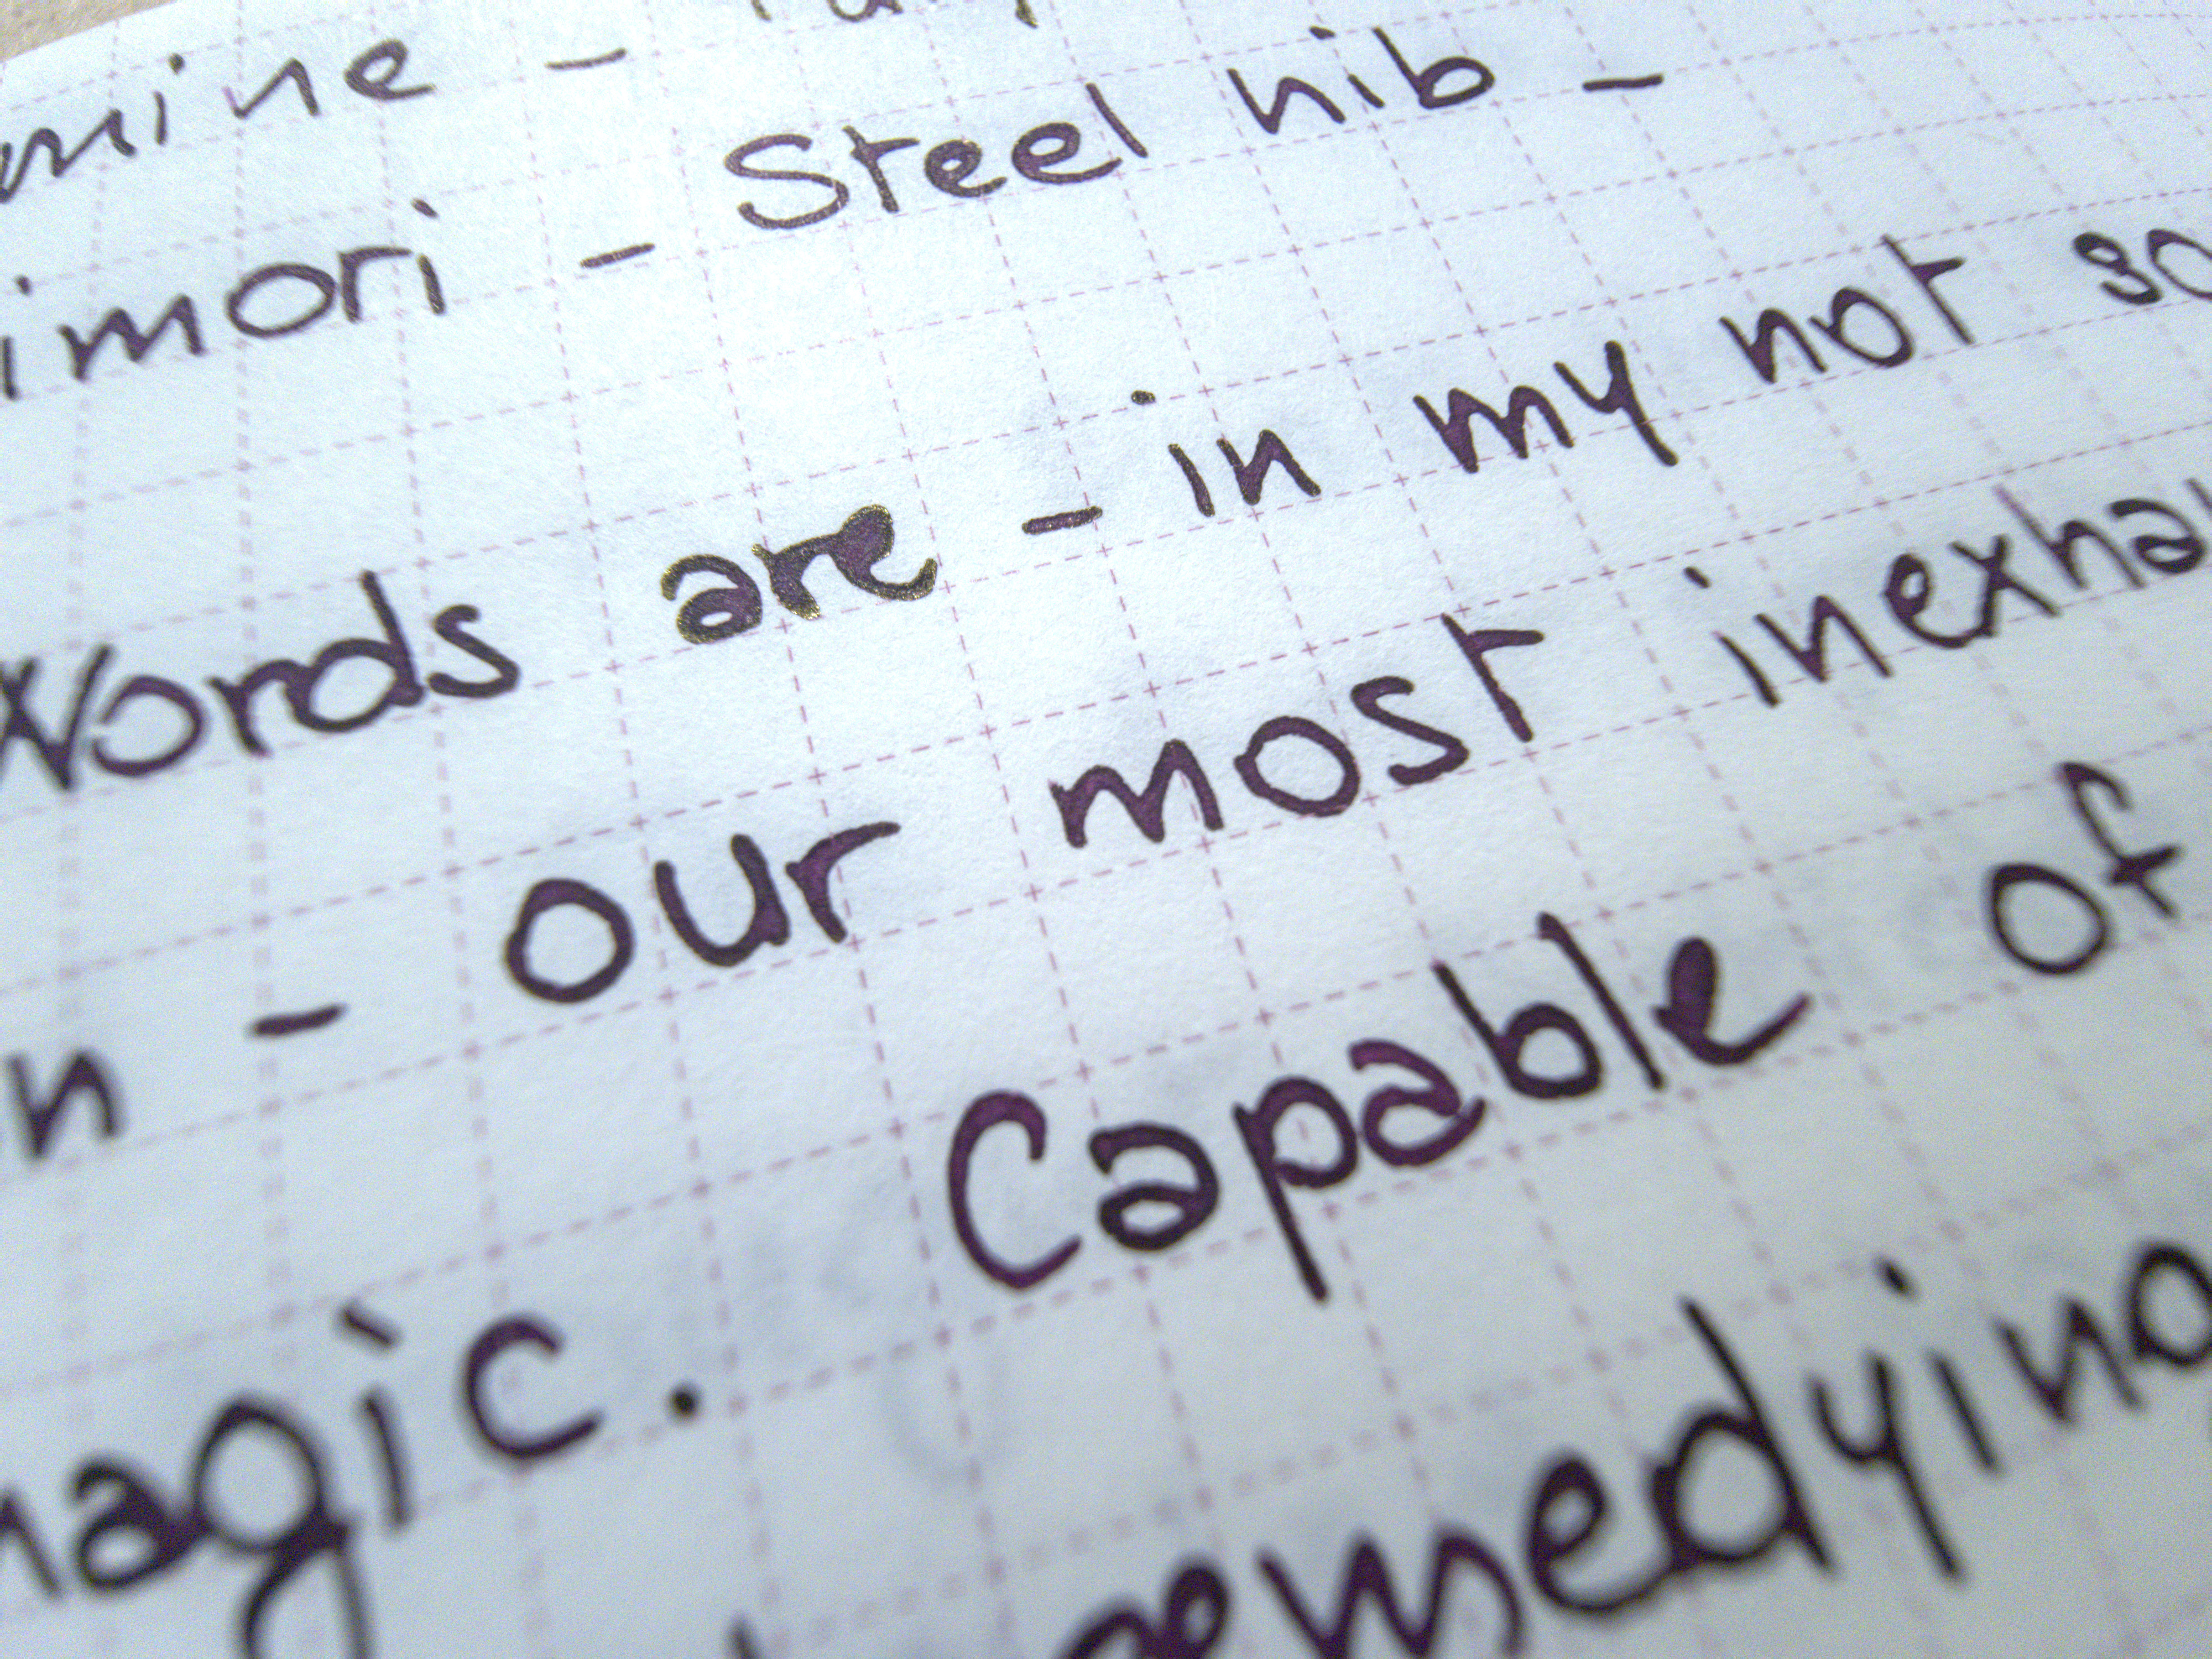 mine -
imori - Steel nib -
Words are - in my not so
n - our most inexha
magic. Capable of
remedying